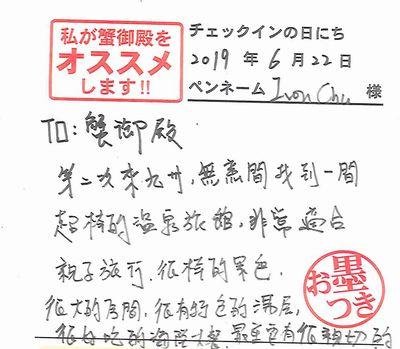 私が蟹御殿を
オススメ
します!!
チェックインの日にち
2019 年 6 月 22 日
ペンネーム Ivon Chu 様
TO: 蟹御殿
第二次來九州,無意間找到一間
超棒的溫泉旅館,非常適合
親子旅行,很棒的景色,
很大的房間,很有特色的湯屋,
很好吃的海陸大餐 最重要有很親切的
お墨
つき